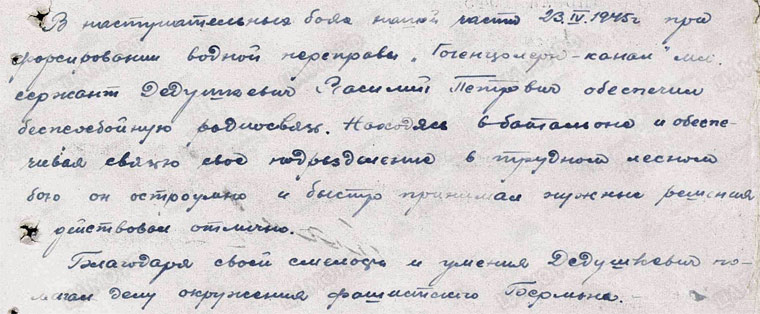 В наступательных боях нашей части 23.IV.1945г при
форсировании водной переправы „Гогенцолерн-канал" мл.
сержант Дедушкевич Василий Петрович обеспечил
бесперебойную радиосвязь. Находясь в батальоне и обеспе-
чивая связью свое подразделение в трудном лесном
бою он остроумно и быстро принимал нужные решения
и действовал отлично.
Благодаря своей смелости и умения Дедушкевич по-
могал делу окружения фашистского Берлина.